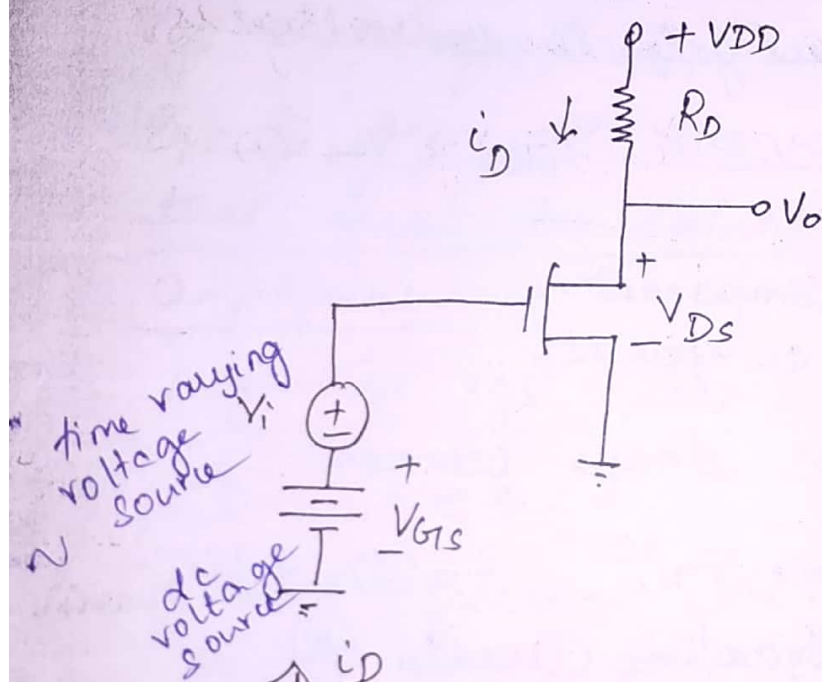 + VDD
RD
iD
Vo
+
VDS
-
time varying
voltage
source
Vi
+
-
+
VGS
-
dc
voltage
source
iD